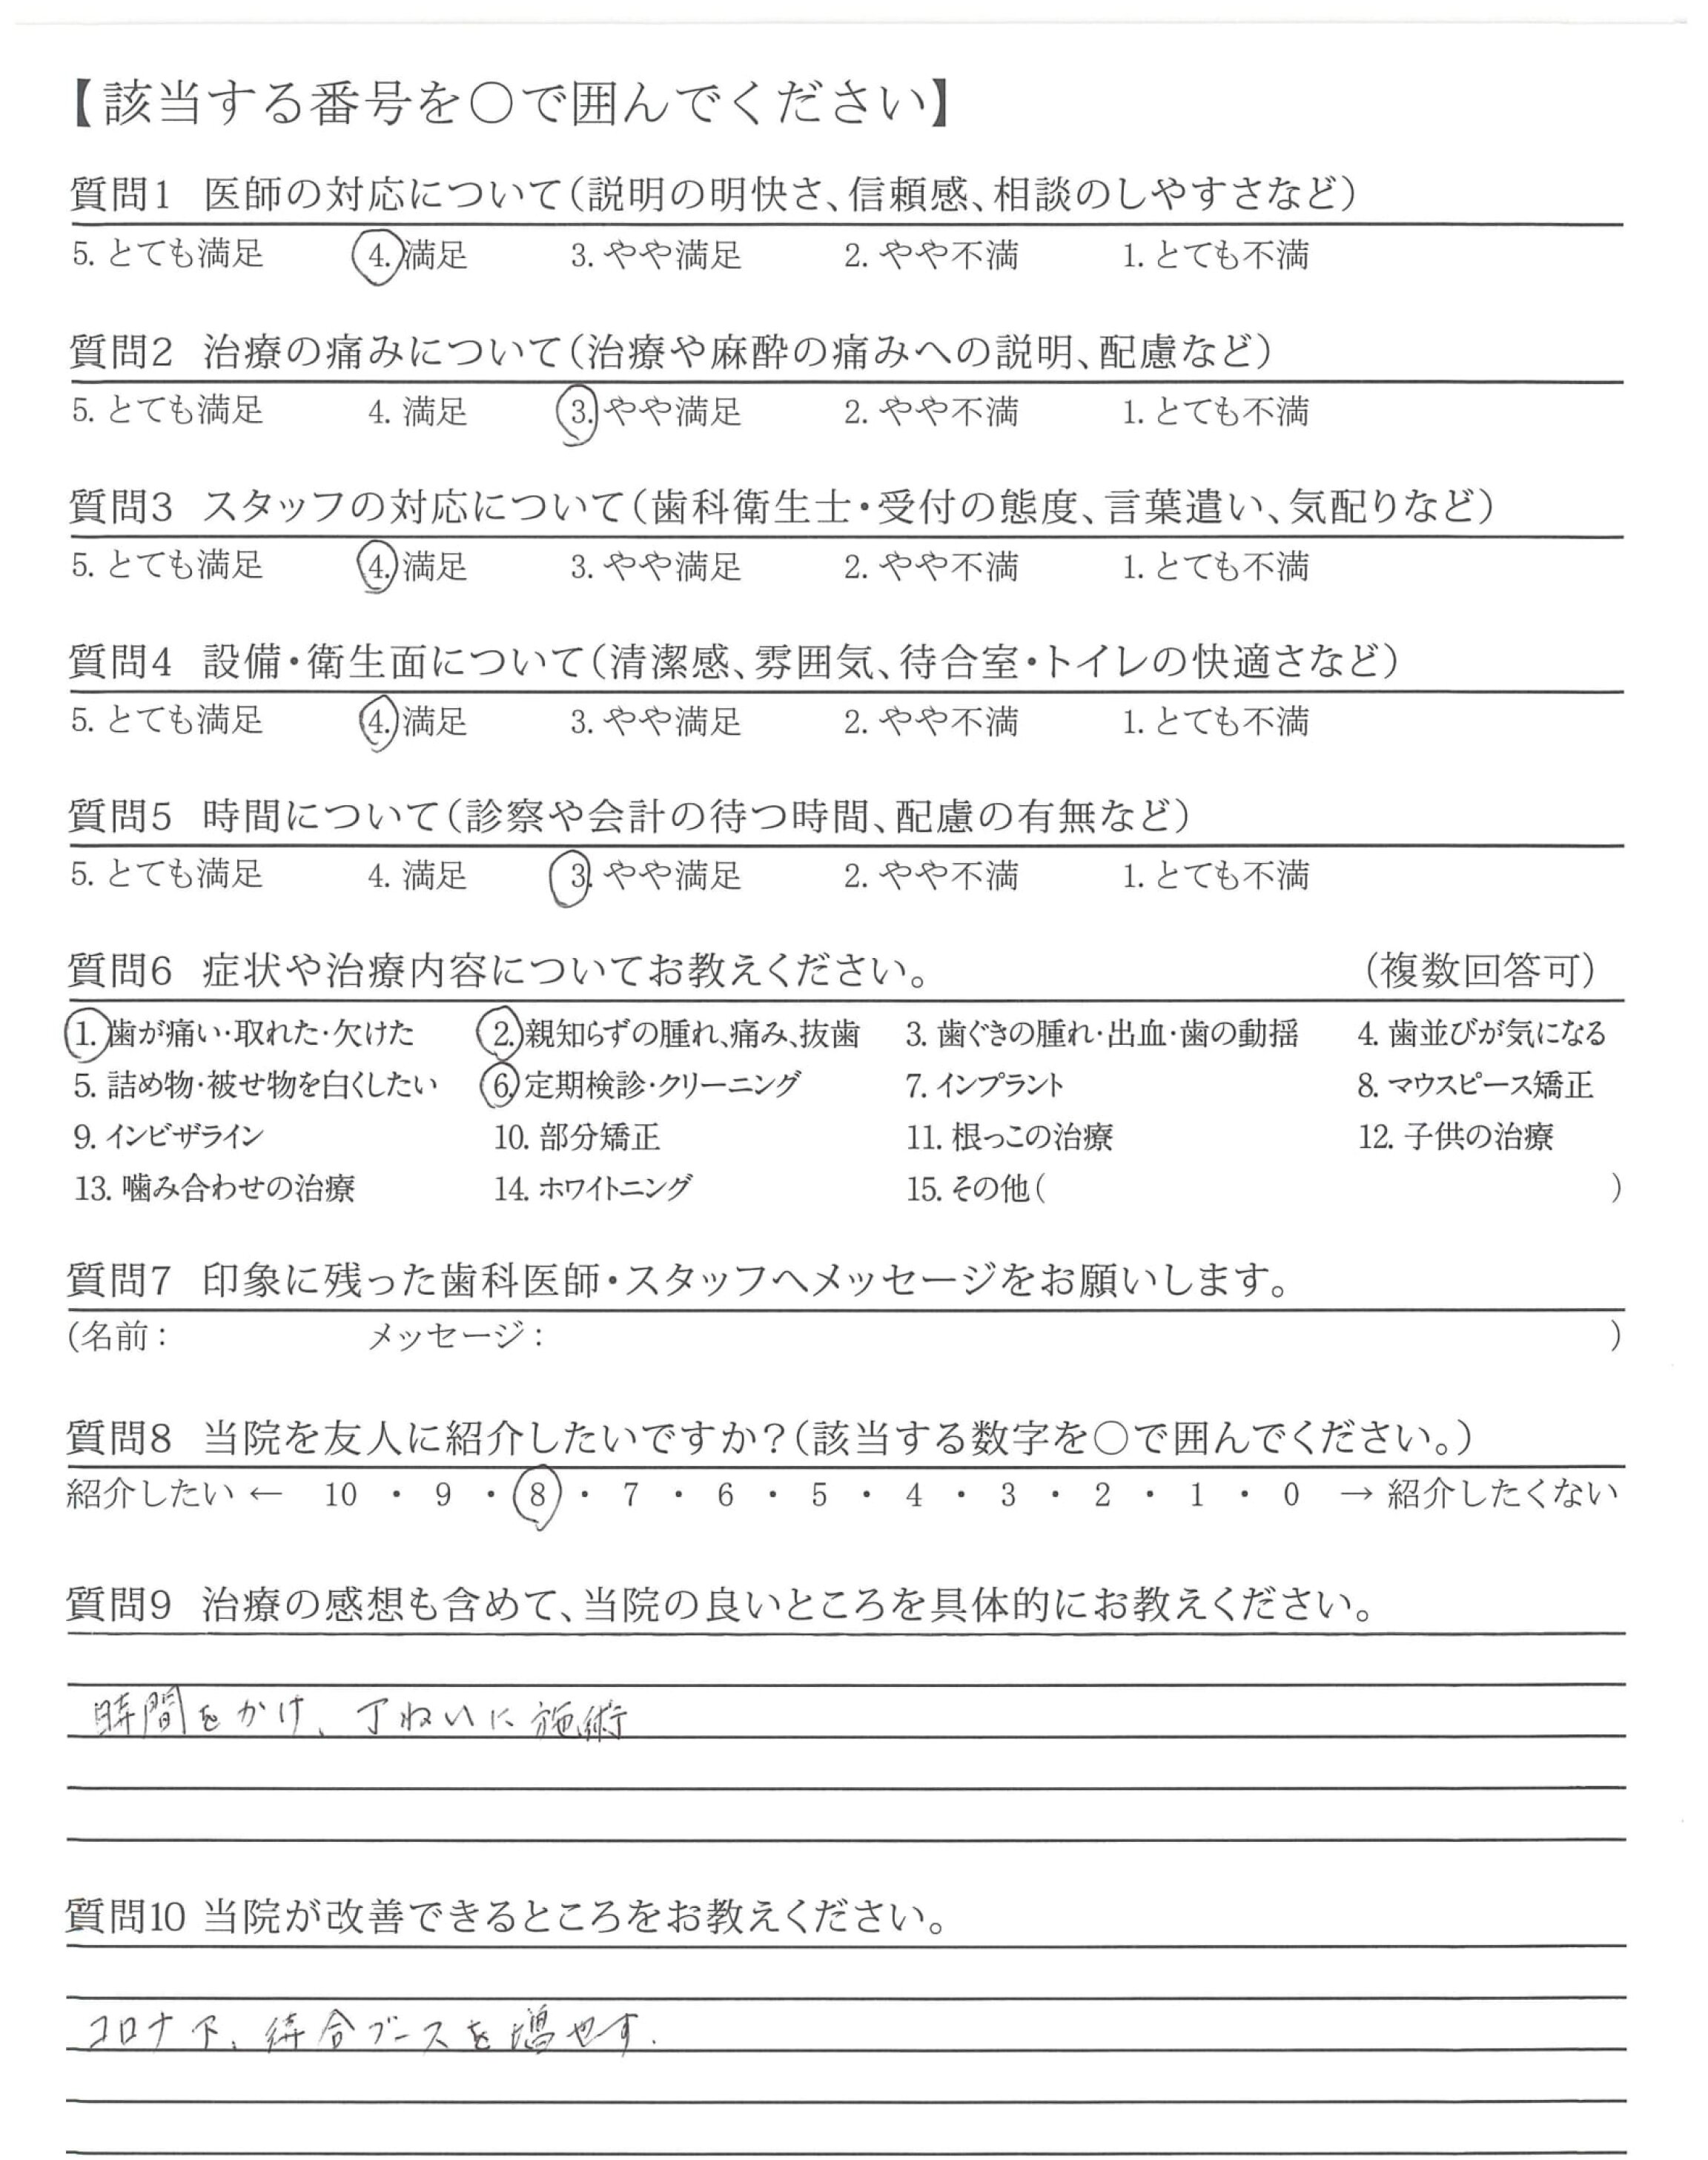 【該当する番号を○で囲んでください】
質問1 医師の対応について(説明の明快さ、信頼感、相談のしやすさなど)
5. とても満足 4. 満足 3. やや満足 2. やや不満 1. とても不満
質問2 治療の痛みについて(治療や麻酔の痛みへの説明、配慮など)
5. とても満足 4. 満足 3. やや満足 2. やや不満 1. とても不満
質問3 スタッフの対応について(歯科衛生士・受付の態度、言葉遣い、気配りなど)
5. とても満足 4. 満足 3. やや満足 2. やや不満 1. とても不満
質問4 設備・衛生面について(清潔感、雰囲気、待合室・トイレの快適さなど)
5. とても満足 4. 満足 3. やや満足 2. やや不満 1. とても不満
質問5 時間について(診察や会計の待つ時間、配慮の有無など)
5. とても満足 4. 満足 3. やや満足 2. やや不満 1. とても不満
質問6 症状や治療内容についてお教えください。 (複数回答可)
1. 歯が痛い・取れた・欠けた 2. 親知らずの腫れ、痛み、抜歯 3. 歯ぐきの腫れ・出血・歯の動揺 4. 歯並びが気になる
5. 詰め物・被せ物を白くしたい 6. 定期検診・クリーニング 7. インプラント 8. マウスピース矯正
9. インビザライン 10. 部分矯正 11. 根っこの治療 12. 子供の治療
13. 噛み合わせの治療 14. ホワイトニング 15. その他( )
質問7 印象に残った歯科医師・スタッフへメッセージをお願いします。
(名前: メッセージ: )
質問8 当院を友人に紹介したいですか?(該当する数字を○で囲んでください。)
紹介したい ← 10 ・ 9 ・ 8 ・ 7 ・ 6 ・ 5 ・ 4 ・ 3 ・ 2 ・ 1 ・ 0 → 紹介したくない
質問9 治療の感想も含めて、当院の良いところを具体的にお教えください。
時間をかけ、丁ねいに施術
質問10 当院が改善できるところをお教えください。
コロナ下、待合ブースを増やす.